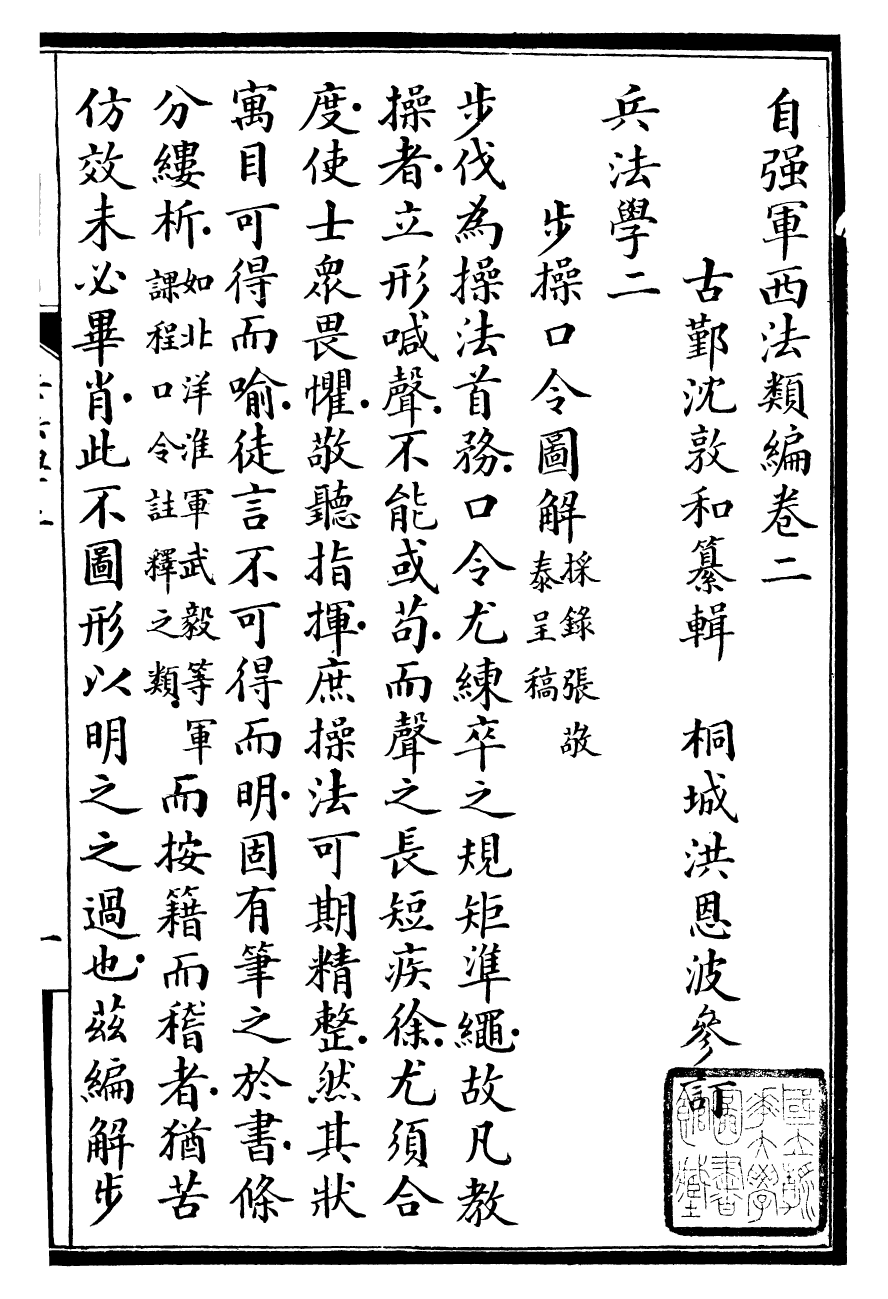 自强軍西法類編卷二
古鄞沈敦和纂輯　桐城洪恩波參訂
兵法學二
步操口令圖解採錄張敬泰呈稿
步伐為操法首務．口令尤練卒之規矩準繩．故凡教
操者．立形喊聲．不能或苟．而聲之長短疾徐．尤須合
度．使士眾畏懼．敬聽指揮．庶操法可期精整．然其狀
寓目可得而喻．徒言不可得而明．固有筆之於書．條
分縷析．如北洋淮軍武毅等軍課程口令註釋之類．而按籍而稽者．猶苦
仿效未必畢肖．此不圖形以明之之過也．茲編解步
一
國立
大學
圖書